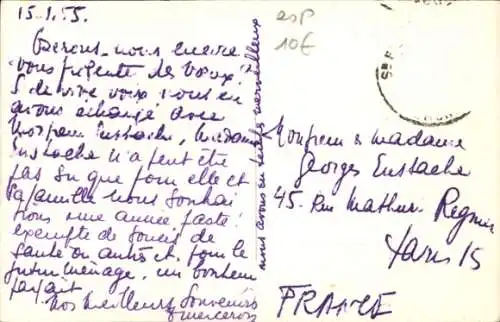 15.1.55.
esp
10€
Oserons-nous encore
vous présenter des vœux?
Si de vive voix nous en
avons échangé avec
Monsieur Eustache, Madame
Eustache n'a peut être
pas su que pour elle et
sa famille nous souhai
tions une année faste!
exempte de soucis de
santé ou autres et pour le
jeune ménage, un bonheur
parfait
Nos meilleurs souvenirs
nous avons un temps merveilleux
Monsieur & Madame
Georges Eustache
45. Rue Mathurin Regnier
Paris 15
FRANCE